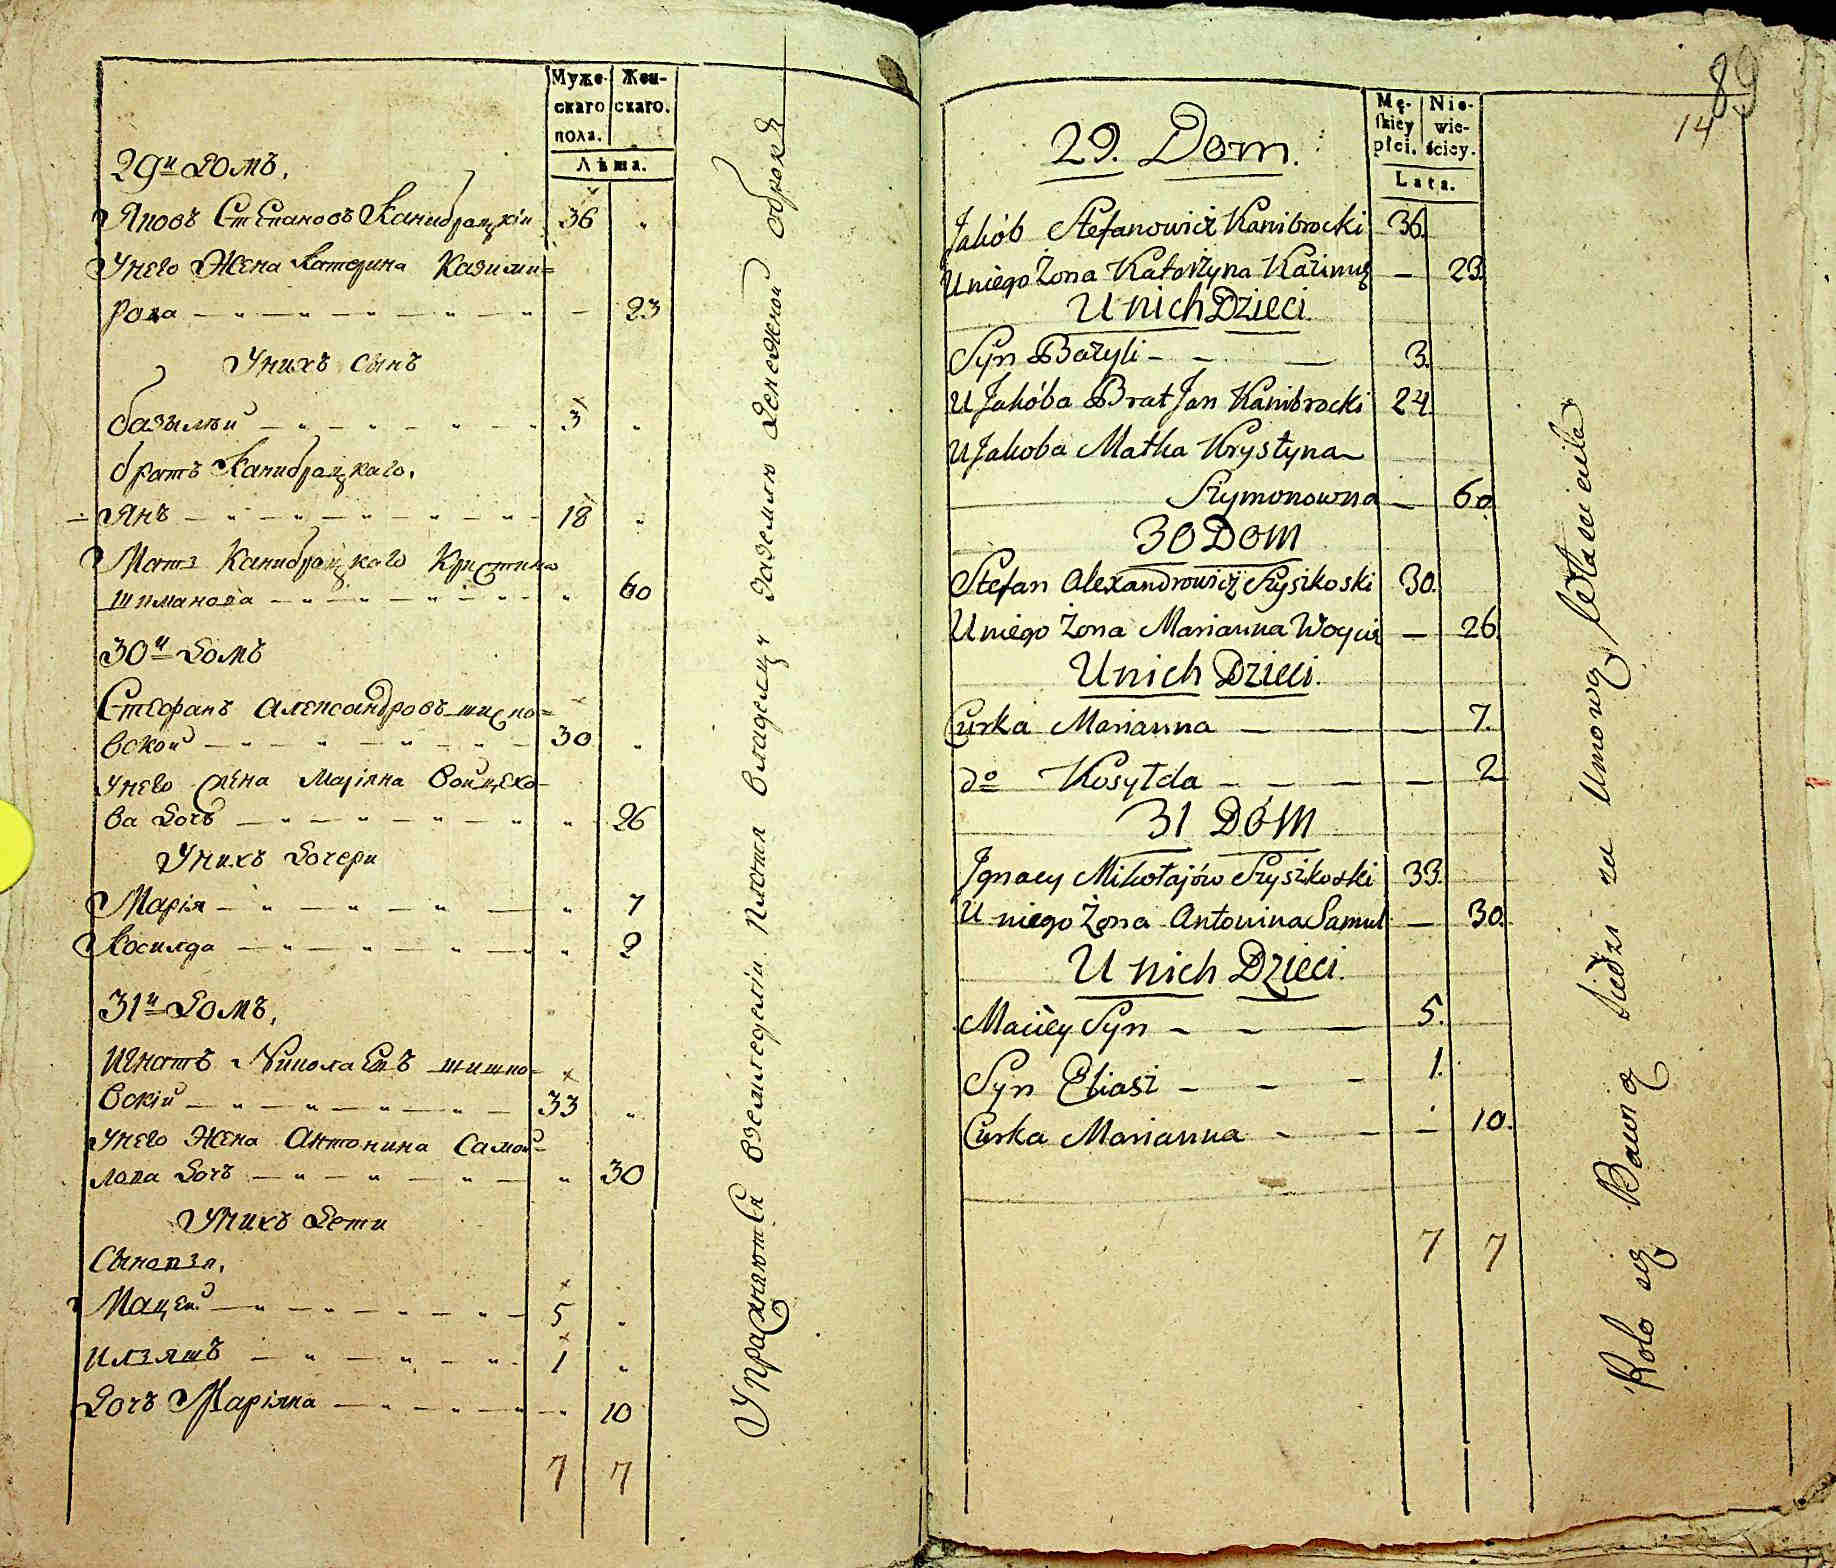 Муже-
скаго
пола.
Жен-
скаго.
Лѣта.
29й Домъ.
Яковъ Степановъ Каниброцкiй 36 „
Унего Жена Катерина Казими=
рова — „ — „ — „ — „ — — 23
Унихъ сынъ
базылѣй — „ — „ — „ — 3 „
братъ Каниброцкаго.
— Янъ — „ — „ — „ — „ — 18 „
Мать Каниброцкаго Кристина
шиманова — „ — „ — „ — „ 60
30й Домъ
Стефанъ Александровъ шишко=
вской — „ — „ — „ — 30 „
унего жена Марiяна Войцехо-
ва Дочь — „ — „ — „ — „ „ 26
Унихъ Дочери
Марiя — „ — „ — „ — „ 7
Косилда — „ — „ — „ — „ 2
31й Домъ.
Игнатъ Николаевъ шишко-
вскiй — „ — „ — „ — „ — 33 „
унего Жена Антонина Самой=
лова Дочь — „ — „ — „ — „ 30
Унихъ Дети
Сыновья.
Мацей — „ — „ — „ — „ — 5 „
илзяшъ — „ — „ — „ 1 „
Дочь Марiяна — „ — „ — „ — „ 10
7 7
Упражняются вземледелiи платя владелцу заземлю Денежной оброкъ
89
14
Mę-
skiey
płci.
Nie-
wie-
ściey.
Lata.
29. Dom.
Jakób Stefanowicz Kanibrocki 36.
U niego Żona Katarżyna Kazimirz — 23.
U nich Dzieci.
Syn Bazyli — — — 3.
U Jakóba Brat Jan Kanibrocki 24.
U Jakoba Matka Krystyna
Szymonowna — 60.
30 Dom
Stefan Alexandrowicz Szyszkoski 30.
U niego Żona Marianna Woyciz — 26.
U nich Dzieci.
Curka Marianna — — — 7.
do Kosyłda — — — — 2
31 Dóm
Jgnacy Mikołajów Szyszkoski 33.
U niego Żona Antonina Samul — 30.
U nich Dzieci.
Maciéy Syn — — — 5.
Syn Eliasz — — — 1.
Curka Marianna — — — 10.
7 7
Rolo się Bawią siedzi za Umową lę